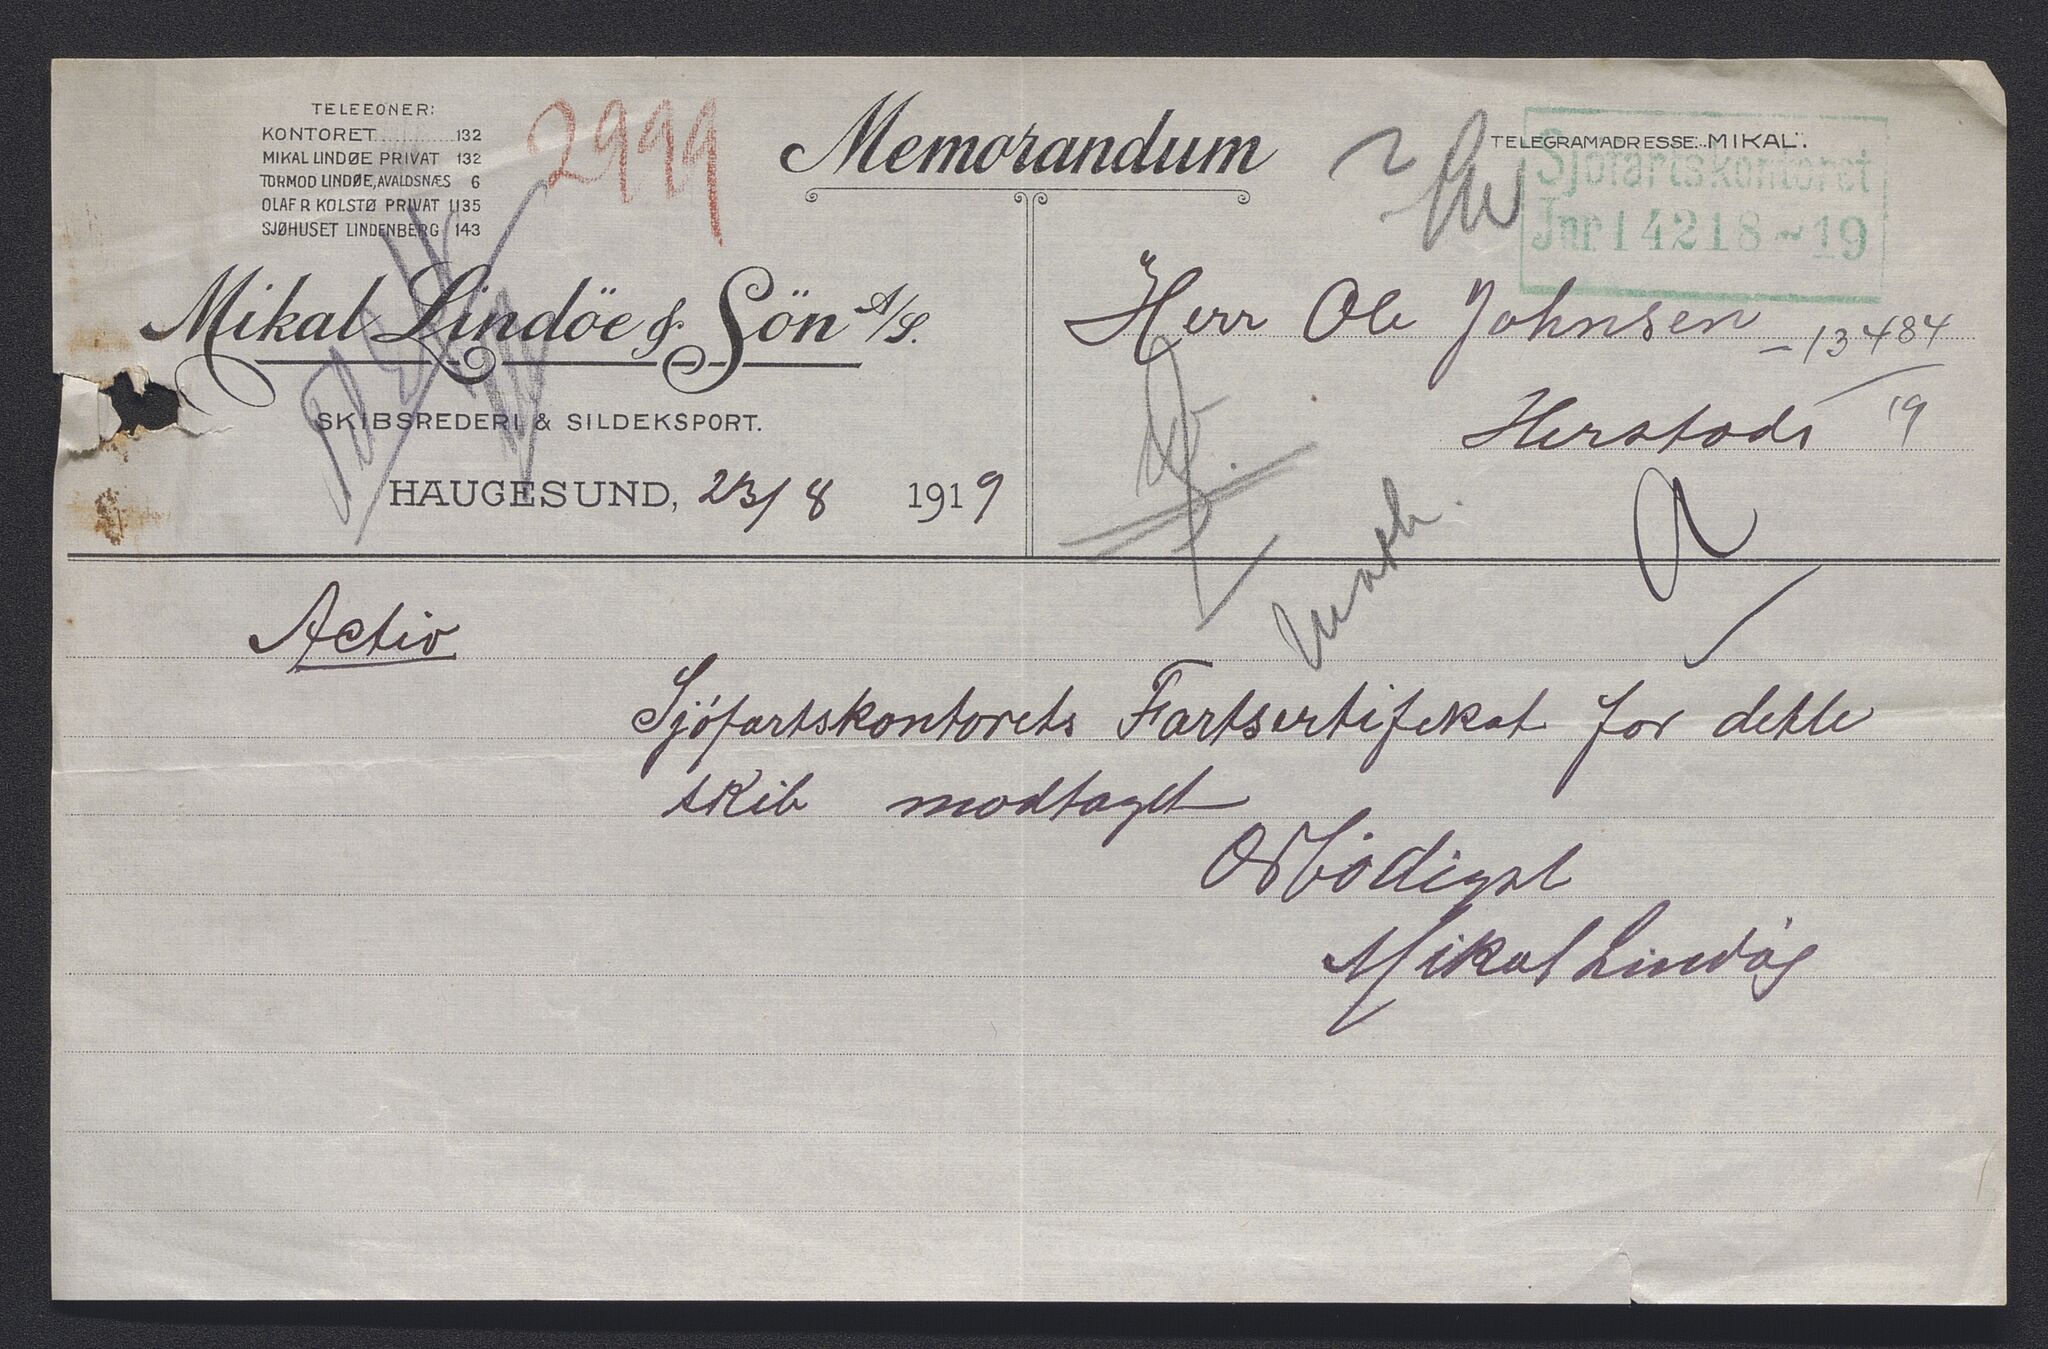 TELEFONER:
KONTORET 132
MIKAL LINDØE PRIVAT 132
TORMOD LINDØE, AVALDSNÆS 6
OLAF R KOLSTØ PRIVAT 1135
SJØHUSET LINDENBERG 143
2999
Memorandum
TELEGRAMADRESSE: "MIKAL".
Sjøfartskontoret
Jnr 14218-19
Mikal Lindöe & Sön A/S.
SKIBSREDERI & SILDEKSPORT.
HAUGESUND, 23/8 1919
Herr Ole Johnsen
-13484
19
Activ
Sjøfartskontorets Fartsertifikat for dette
skib modtaget
Ærbødigst
Mikal Lindøe